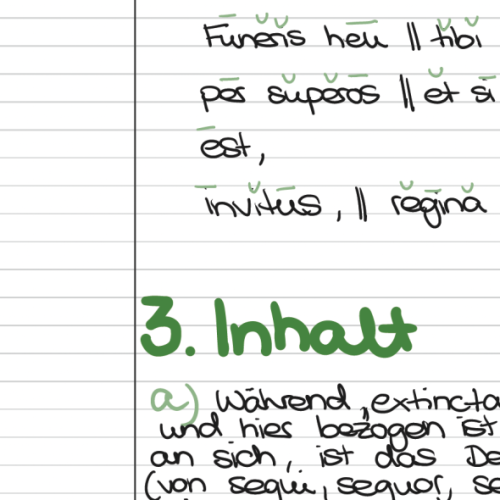 Funeris heu || tibi
per superos || et si
est,
invitus, || regina
3. Inhalt
a) Während, extincta
und hier bezogen ist
an sich, ist das De
(von sequi, sequor, se